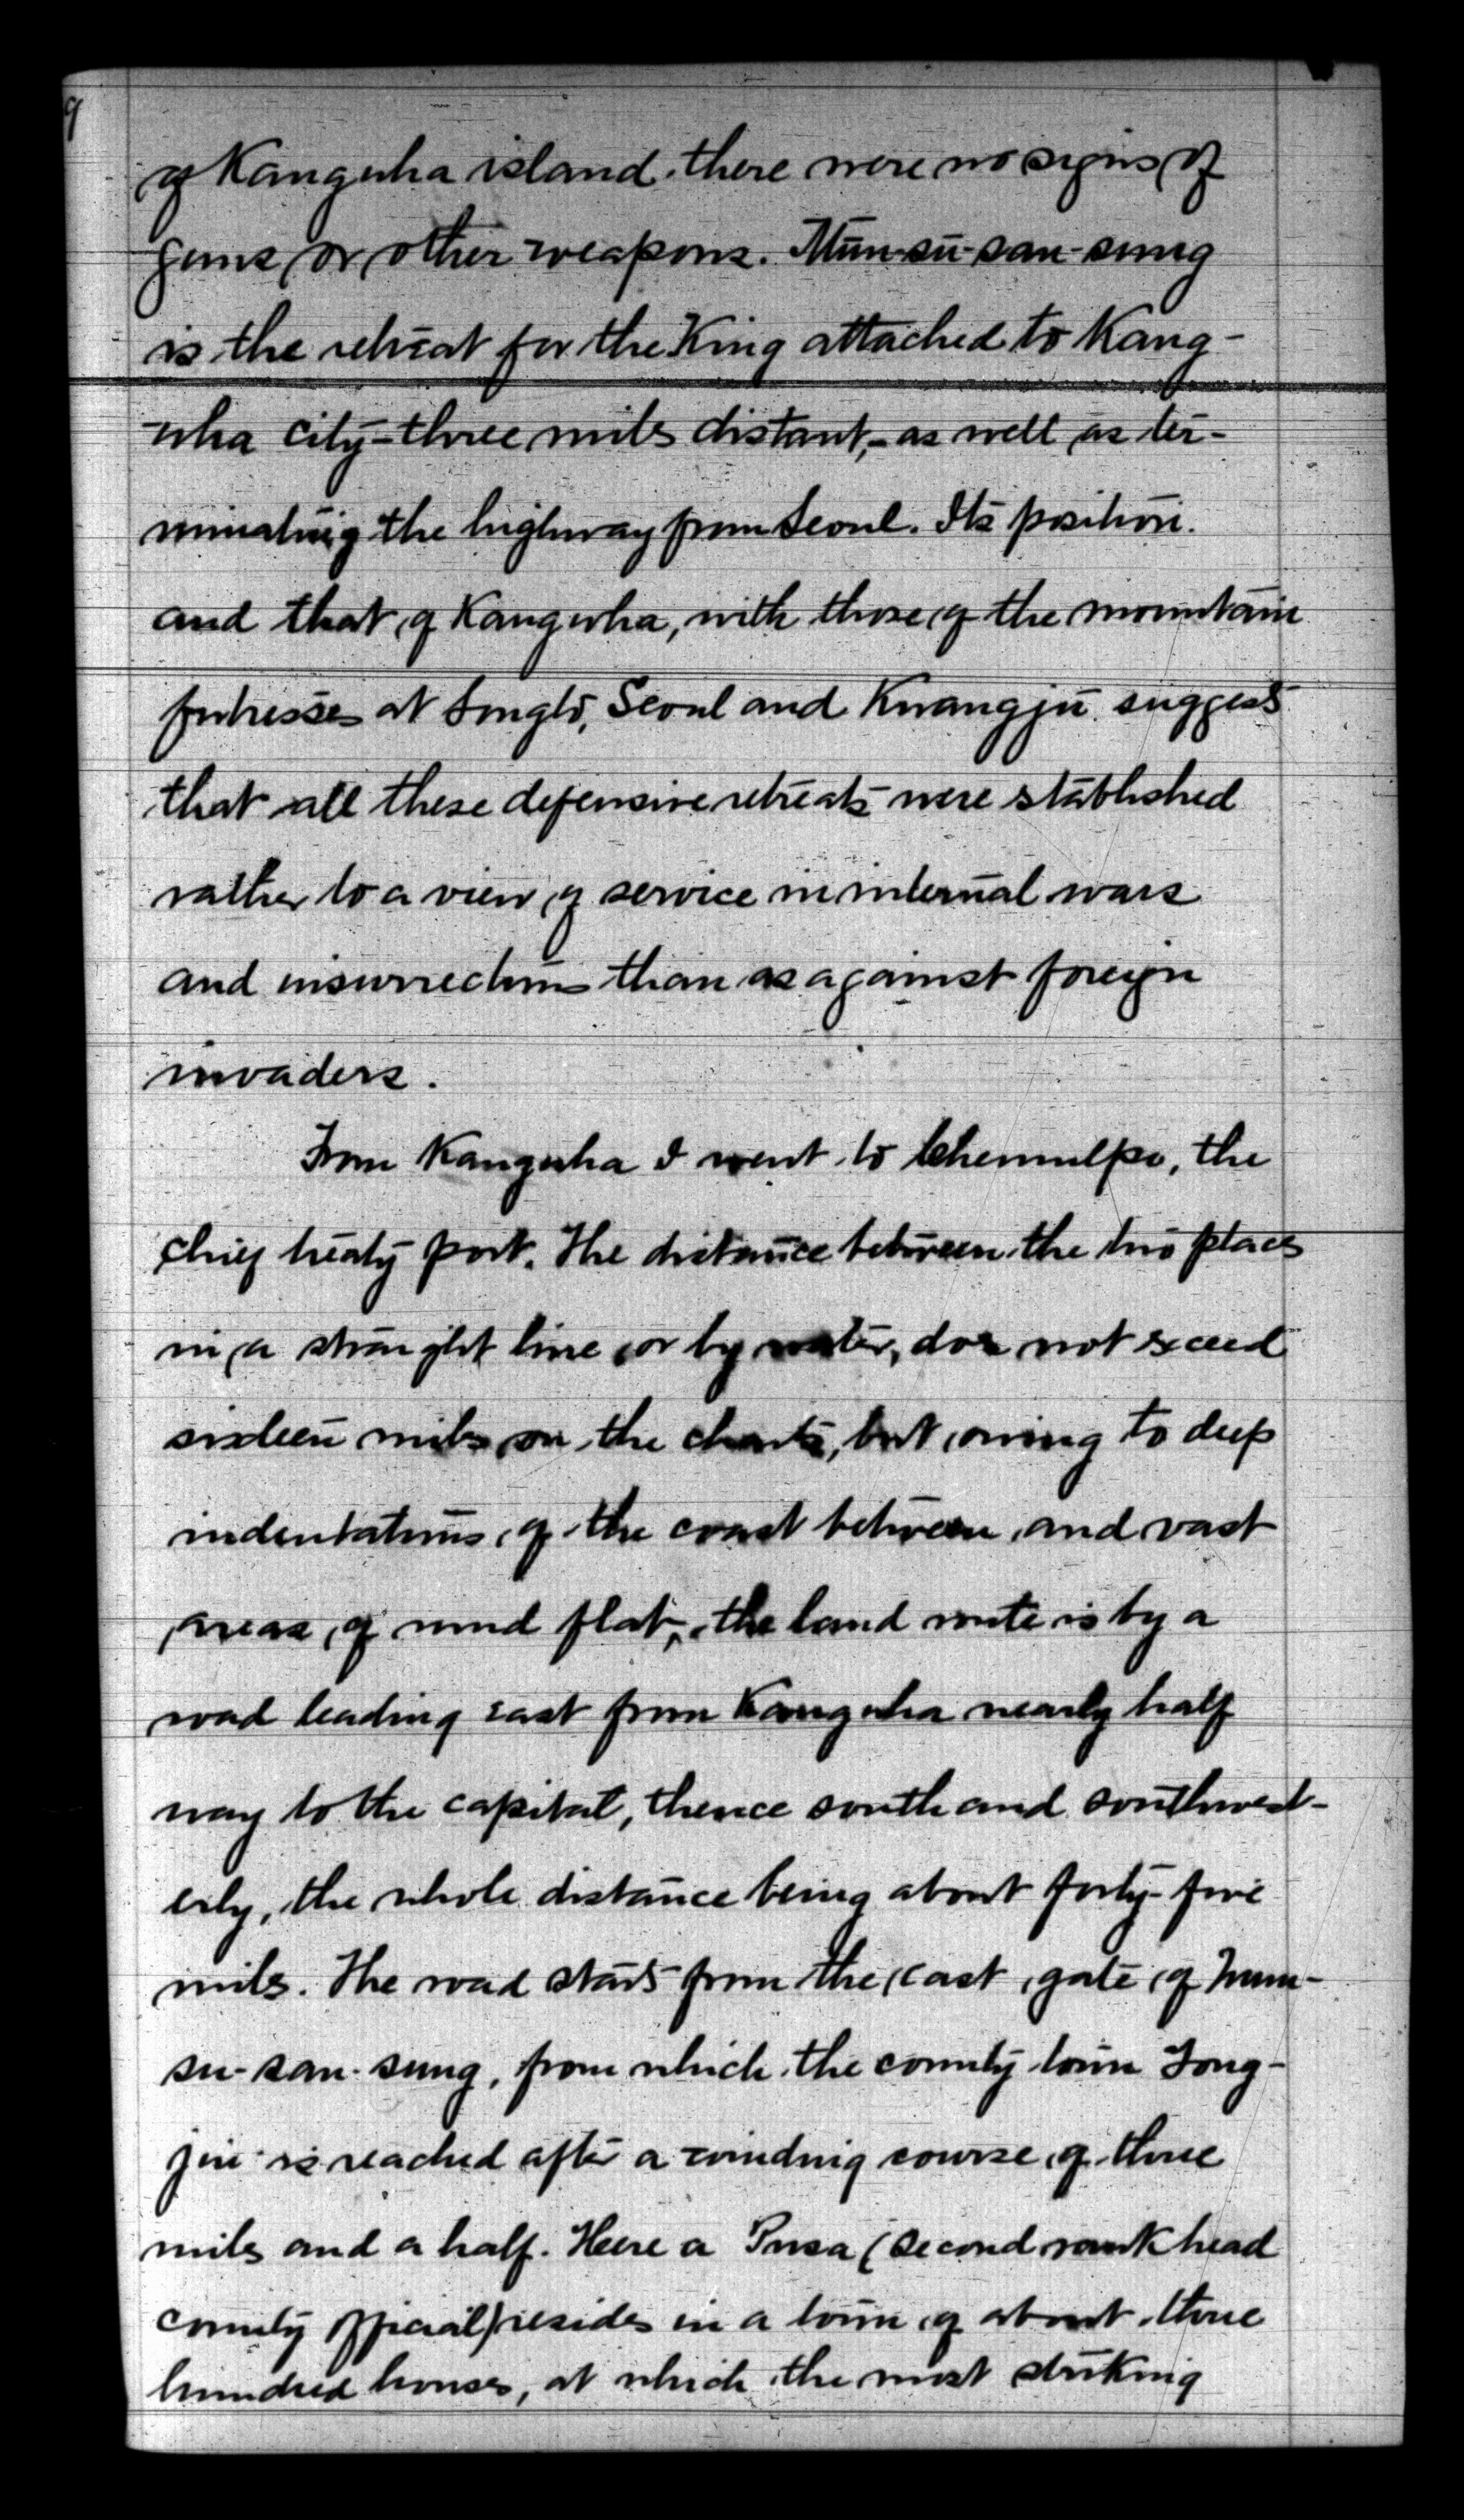 9
of Kangwha island. there were no signs of
guns or other weapons. Mun-su-san-sung
is the retreat for the King attached to Kang-
wha city - three miles distant, - as well as ter-
minating the highway from Seoul. Its position.
and that of Kangwha, with those of the mountain
fortresses at Songto, Seoul and Kwangju suggests
that all these defensive retreats were established
rather to a view of service in internal wars
and insurrections than as against foreign
invaders.
From Kangwha I went to Chemulpo, the
chief treaty port. The distance between the two places
in a straight line, or by water, does not exceed
sixteen miles on the charts, but owing to deep
indentations of the coast between, and vast
areas of mud flat, the land route is by a
road leading east from Kangwha nearly half
way to the capital, thence south and southwest-
erly, the whole distance being about forty-five
miles. The road starts from the east gate of Mun-
su-san-sung, from which the county town Tong-
jin is reached after a winding course of three
miles and a half. Here a Pusa (second rank head
county official) resides in a town of about three
hundred houses, at which the most striking